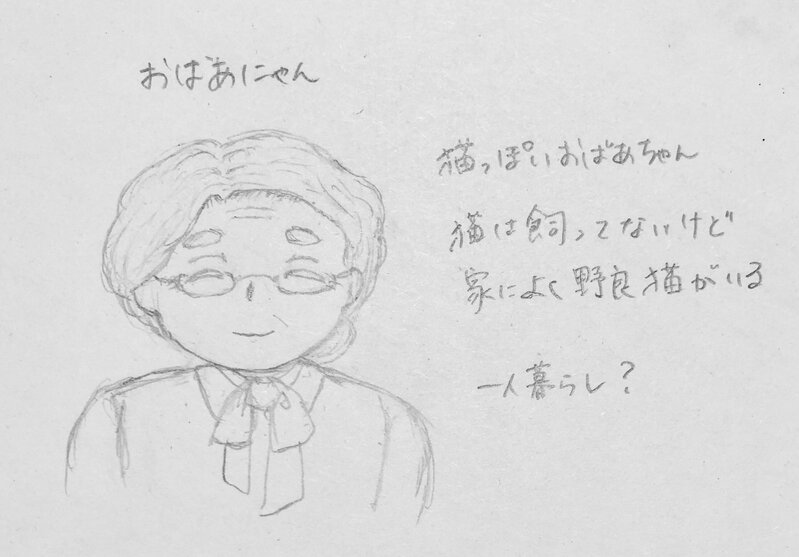 おばあにゃん
猫っぽいおばあちゃん
猫は飼ってないけど
家によく野良猫がいる
一人暮らし？